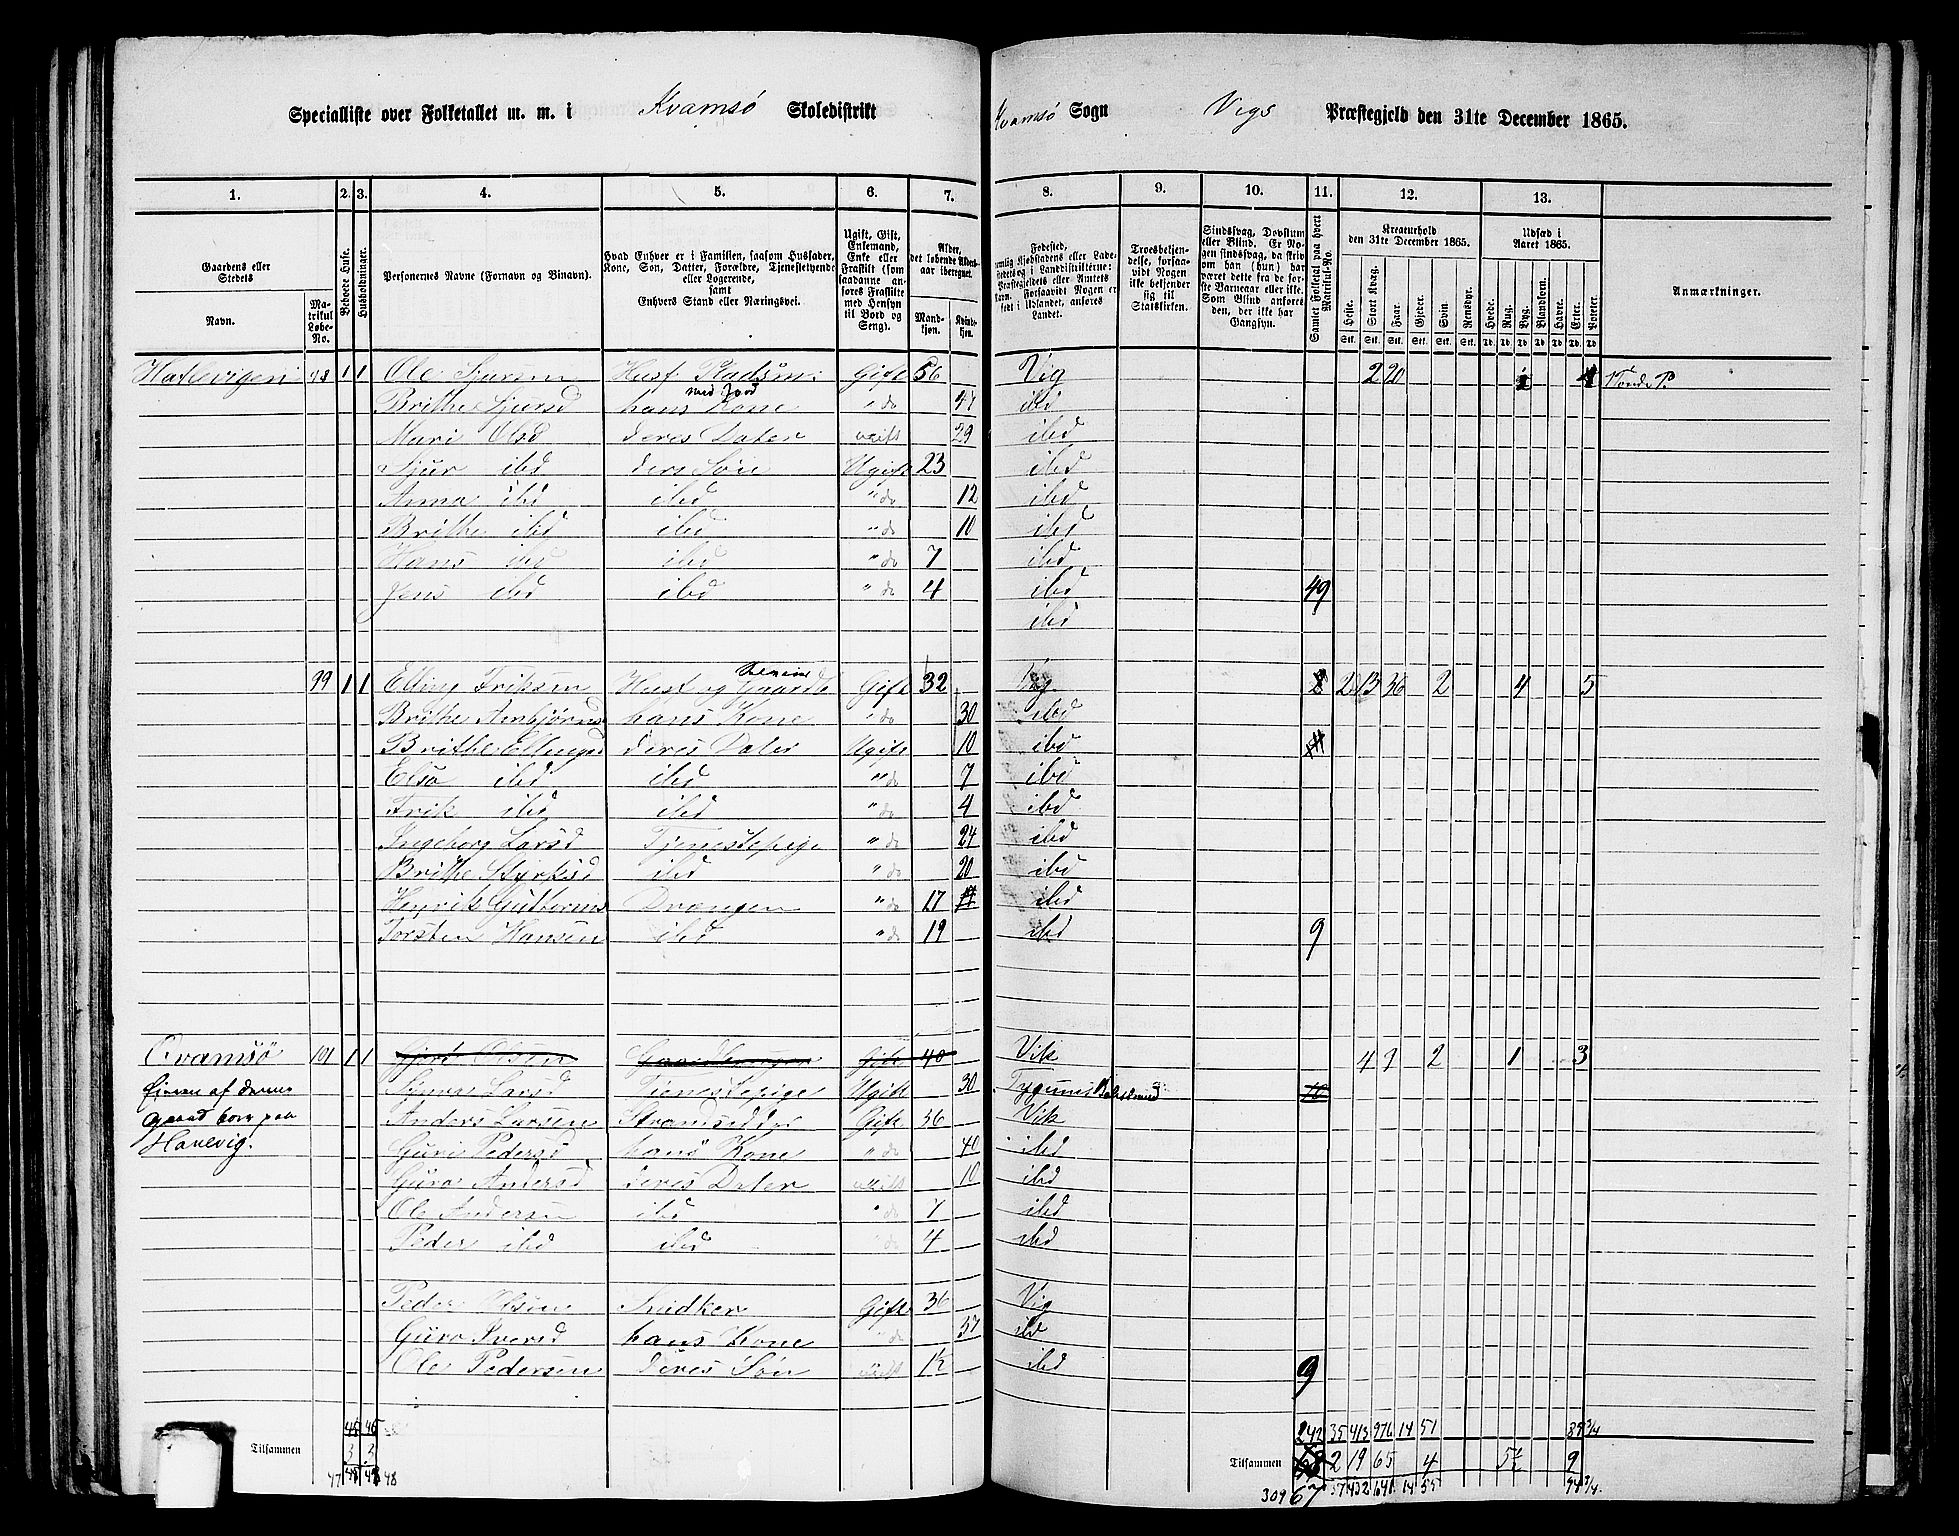 Specialliste over Folketallet m. m. i Kvamsö Skoledistrikt Kvamsö Sogn Vigs Præstegjeld den 31te December 1865.
1. 2. 3. 4. 5. 6. 7. 8. 9. 10. 11. 12. 13.
Gaardens eller Stedets
Navn.
Matrikul Løbe-No.
Beboede Huse.
Husholdninger.
Personernes Navne (Fornavn og Binavn).
Hvad Enhver er i Familien, saasom Husfader, Kone, Søn, Datter, Forældre, Tjenestetyende eller Logerende, samt Enhvers Stand eller Næringsvei.
Ugift, Gift, Enkemand, Enke eller Fraskilt (som saadanne anføres Fraskilte med Hensyn til Bord og Seng).
Alder, det løbende Alders-aar iberegnet.
Mandkjøn. Kvindekjøn.
Fødested,
Troesbekjendelse, forsaavidt Nogen ikke bekjender sig til Statskirken.
Sindssvag, Døvstum eller Blind. Er Nogen sindssvag, da skrives om han (hun) har været dette fra de første Barneaar eller ikke. Som Blind anføres den, der ikke har Gangsyn.
Samlet Folketal paa hvert Matrikul-No.
Kreaturhold den 31te December 1865.
Heste. Stort Kvæg. Faar. Gjeder. Sviin. Rensdyr.
Udsæd i Aaret 1865.
Hvede. Rug. Byg. Blandkorn. Havre. Erter. Poteter.
Anmærkninger.
1 1 Ole Sjursen Husf Pladsm: med Jord Gift 56 Vig 2 20
Brithe Sjursd hans Kone do 47 ibd
Mari Olsd deres Dater ugift 29 ibd
Sjur ibd ders Søn Ugift 23 ibd
Anna ibd ibd " do 12 ibd
Brithe ibd ibd " do 10 ibd
Hans ibd ibd " do 7 ibd
Jens ibd ibd " do 4 ibd 49
ibd
99 1 1 Elling Eriksen Husf og Gaardb Selveier Gift 32 Vig 2 13 36 2 4 5
Brithe hans Kone do 30 ibd
Brithe Ellingsd deres Dater Ugift 10 ibd
Elsa ibd ibd " do 7 ibd
Erik ibd ibd " do 4 ibd
Ingeborg Larsd Tjenestepige " do 24 ibd
Brithe Styrksd ibd " do 20 ibd
Henrik Guttorms Drængen " do 17 ibd
Torsten Hansen ibd " do 19 ibd 9
Qvamsö 101 1 1 Olsen Gaardbruger Gift 40 Vik 4 9 2 1 3
Eieren af denne
gaard bor paa
Hanevig.
Larsd Tjenestepige Ugift 30
Anders Larsen Strandsidder Gift 36 Vik
Guri Pedersd hans Kone " do 40 ibd
Guro Andersd deres Dater ugift 10 ibd
Ole Andersen ibd " do 7 ibd
Peder ibd ibd " do 4 ibd
Peder Olsen Snedker Gift 36 Vig
Guro Iversd hans Kone do 37 ibd
Ole Pedersen deres Søn ugift 1½ ibd 9
242 35 413 976 14 51 85 3/4
Tilsammen 3 2 Tilsammen 2 19 65 4 5½ 9
309 67